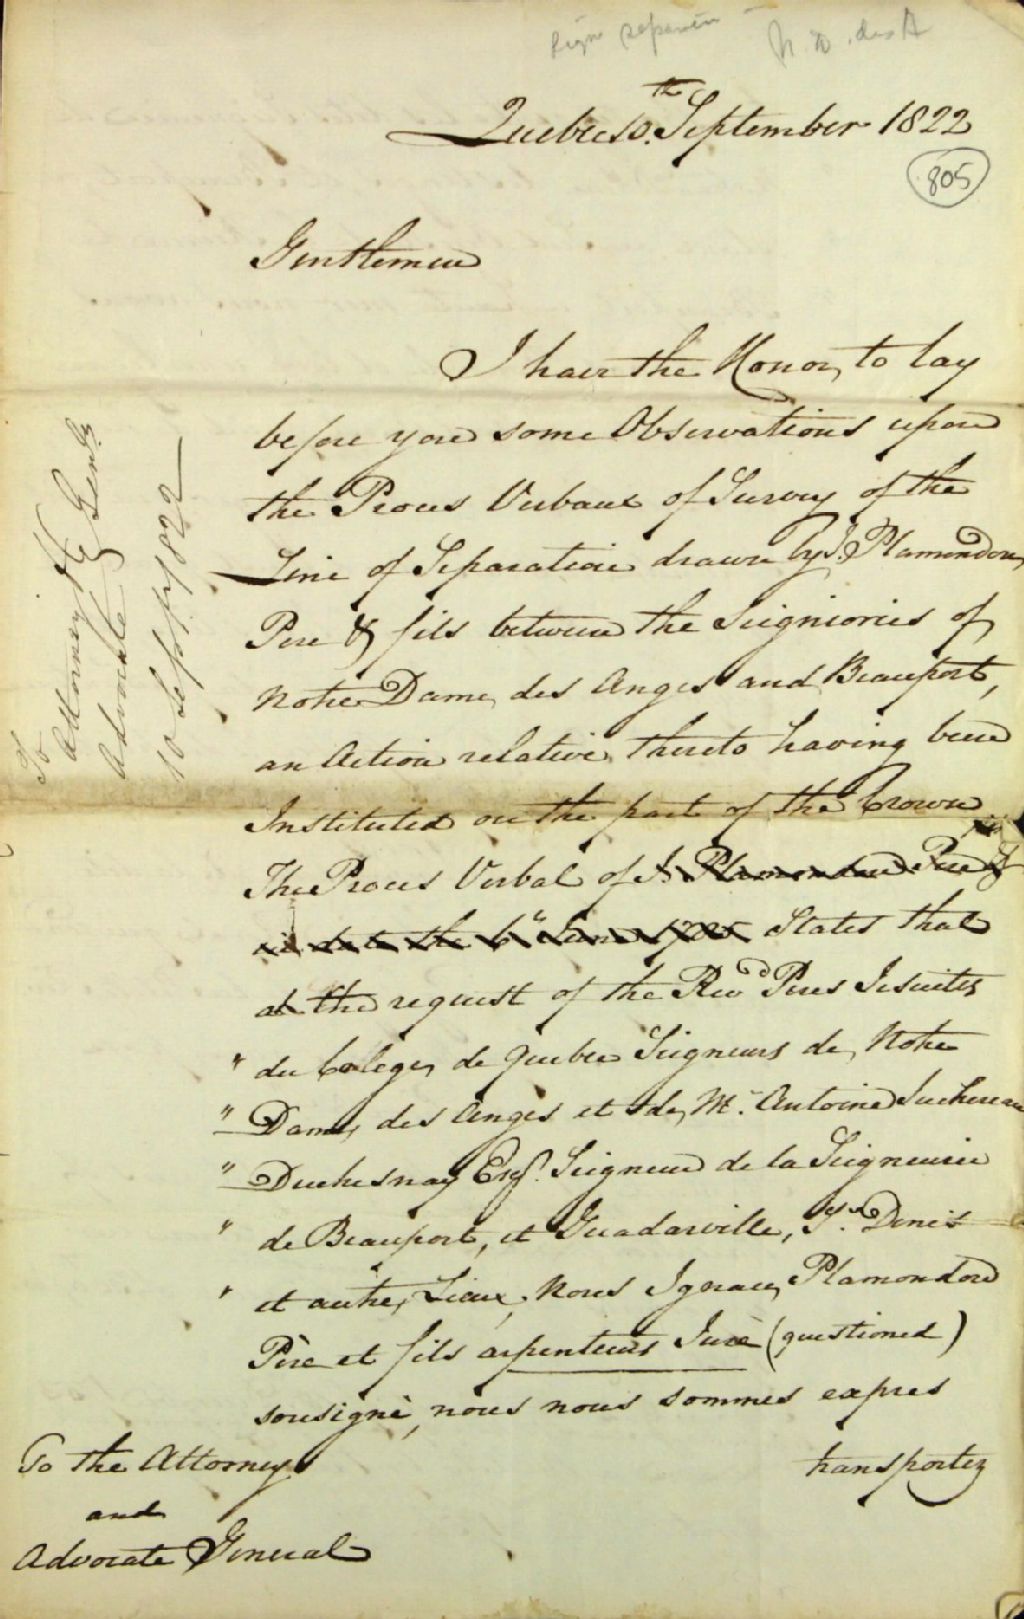 N. D. des A
Quebec 10.th September 1822
805
Gentlemen
I have the Honor, to lay
before you some Observations upon
the Proces Verbaux of Survey of the
Line of Separation drawn by I. Plamondon
Pere & fils between the Seigniories of
Notre Dame, des Anges and Beauport,
an Action relative, thereto having been
Instituted on the part of the Crown
The Proces Verbal of I. Plamondon Pere &
in date the 6th June 1785 States that
at the request of the Revd Peres Jesuites
" du College, de Quebec Seigneurs de, Notre
" Dame, des Anges et de, Mr. Antoine Juchereau
" Duchesnay Esqr. Seigneur de la Seigneurie
" de Beauport, et Guadarville, St. Denis
" et autre, Lieux, Nous Ignace, Plamondon
Père et fils arpenteurs Jurè (questioned)
sousignè, nous nous sommes expres
transportez
To the Attorney
and
Advocate General
To
Attorney &
Advocate Genls
10 Sept. 1822